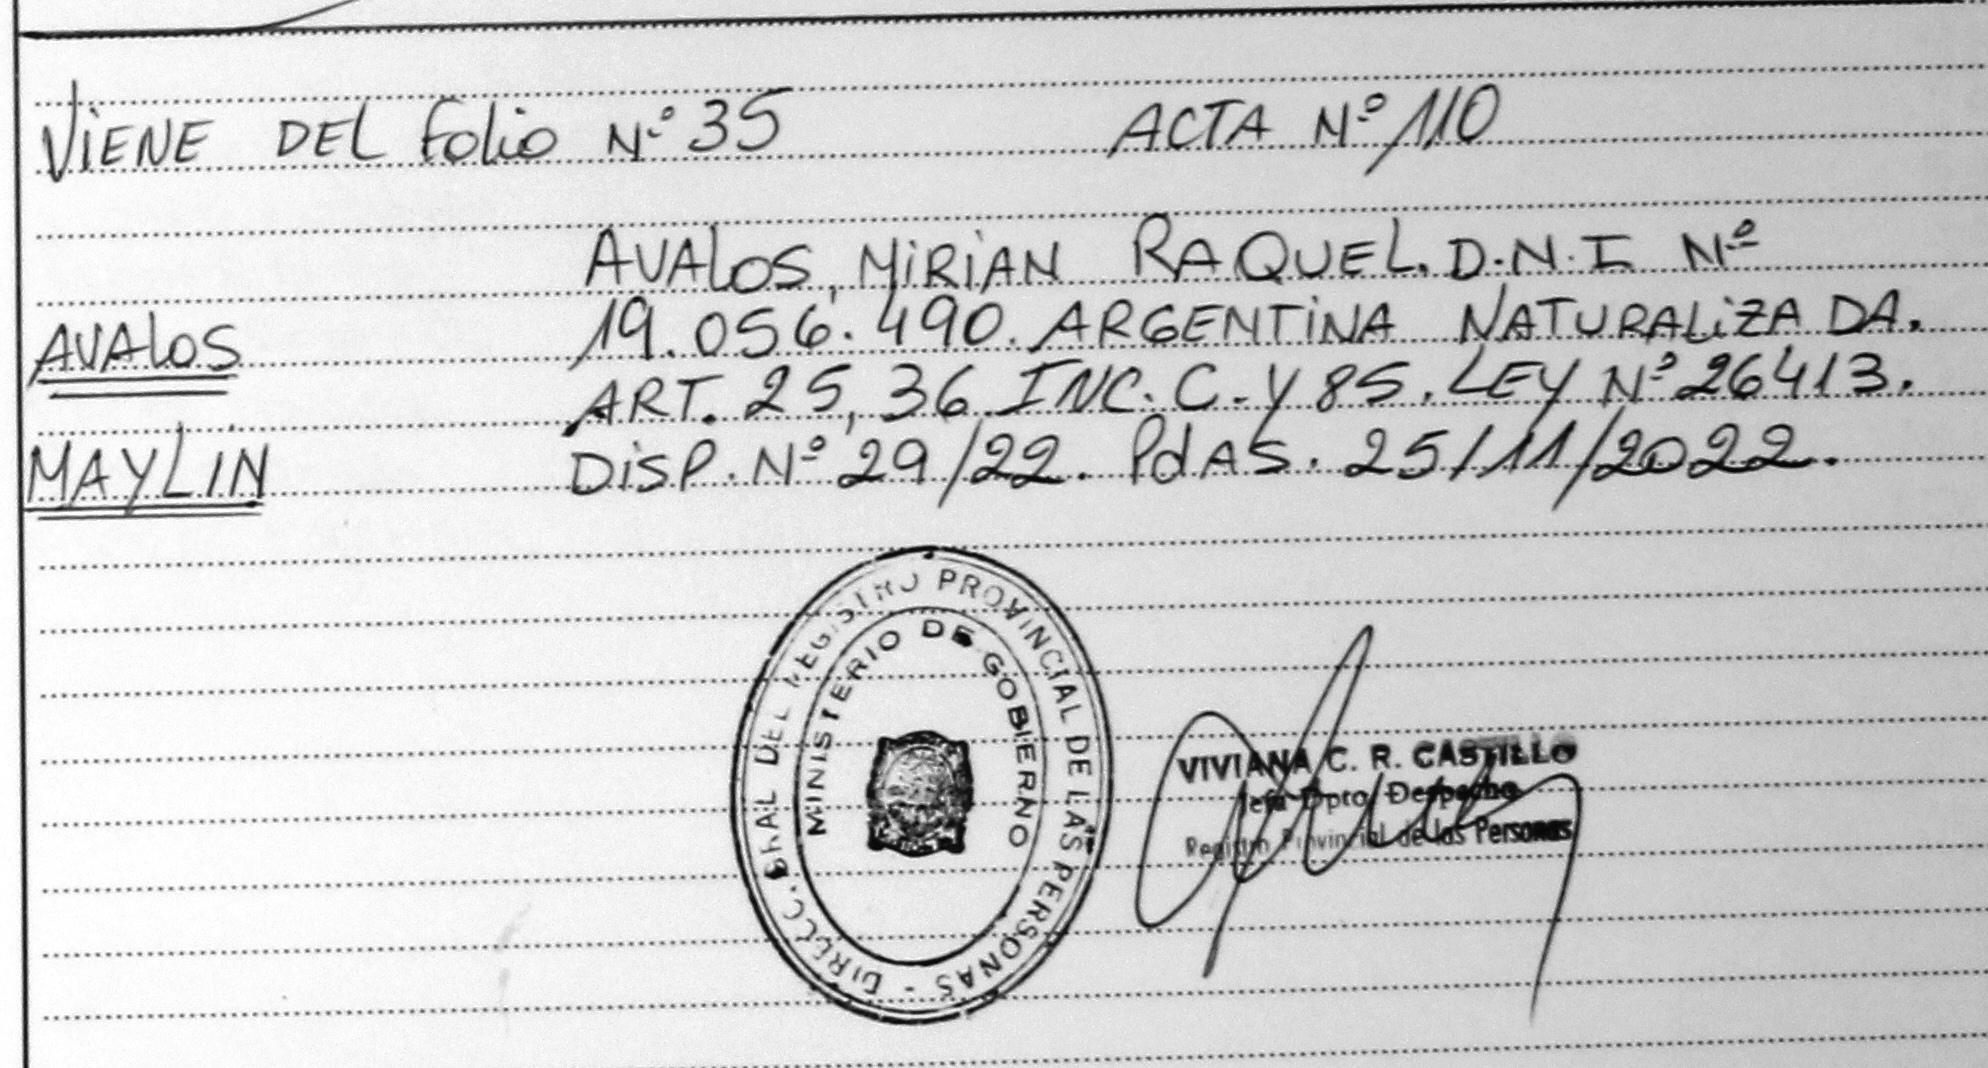 VIENE DEL Folio Nº 35 ACTA Nº 110
AVALOS, MIRIAN RAQUEL. D.N.I Nº
AVALOS
19.056.490. ARGENTINA NATURALIZADA.
ART. 25, 36 INC. C. Y 85. LEY Nº 26413.
MAYLIN
DISP. Nº 29/22. PdAS. 25/11/2022.
DIRECC. GRAL DEL REGISTRO PROVINCIAL DE LAS PERSONAS -
MINISTERIO DE GOBIERNO
VIVIANA C. R. CASTILLO
Jefa Dpto Despacho
Registro Provincial de las Personas